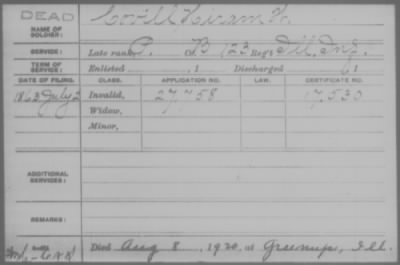 DEAD
NAME OF SOLDIER: Covill Hiram W.
SERVICE: Late rank P. Co. B 123 Reg't Ill. Inf.
TERM OF SERVICE: Enlisted , 1 Discharged , 1
DATE OF FILING. CLASS. APPLICATION NO. LAW. CERTIFICATE NO.
1863 July 2 Invalid, 27,758 17,530
Widow,
Minor,
ADDITIONAL SERVICES:
REMARKS:
Died Aug 8, 1920, at Greenup, Ill.